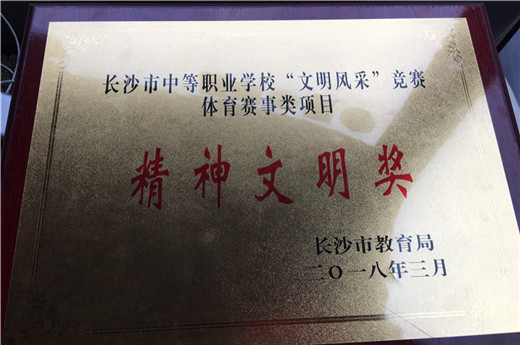 长沙市中等职业学校“文明风采”竞赛
体育赛事类项目
精神文明奖
长沙市教育局
二〇一八年三月